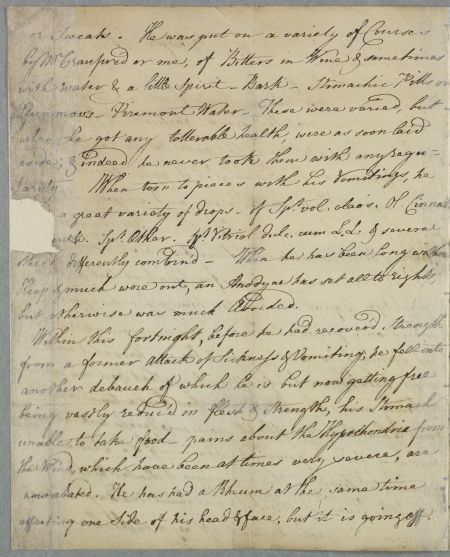 or Sweats. He was put on a variety of Courses
by Mr Craufurd or me, of Bitters in Wine & sometimes
with water & a little Spirit – Bark – Stomachic Pills on
Gummous – Piremont Water – These were varied, but
when he got any tollerable health, were as soon laid
aside; & indeed he never took them with any regu-
larity
When torn to pieces with his Vomitings, he
a great variety of drops – of Spt. vol. oleos. Ol. Cinnam
Spt. Æther. Spt. Vitriol. dulc. cum L.L: & several
others differently combind – When he has been long without
Sleep & much wore out, an Anodyne has set all to rights
but otherwise was much Avoided.
Within this fortnight, before he had recover'd Strength
from a former attack of Sickness & Vomiting, he fell into
another debauch of which he is but now getting free
being vastly reduc'd in flesh & strength, his Stomach
unable to take food – pains about the Hypochondria from
the Wind, which have been at times very severe, are
now abated. He has had a Rheum at the same time
affecting one side of his head & face, but it is going off.